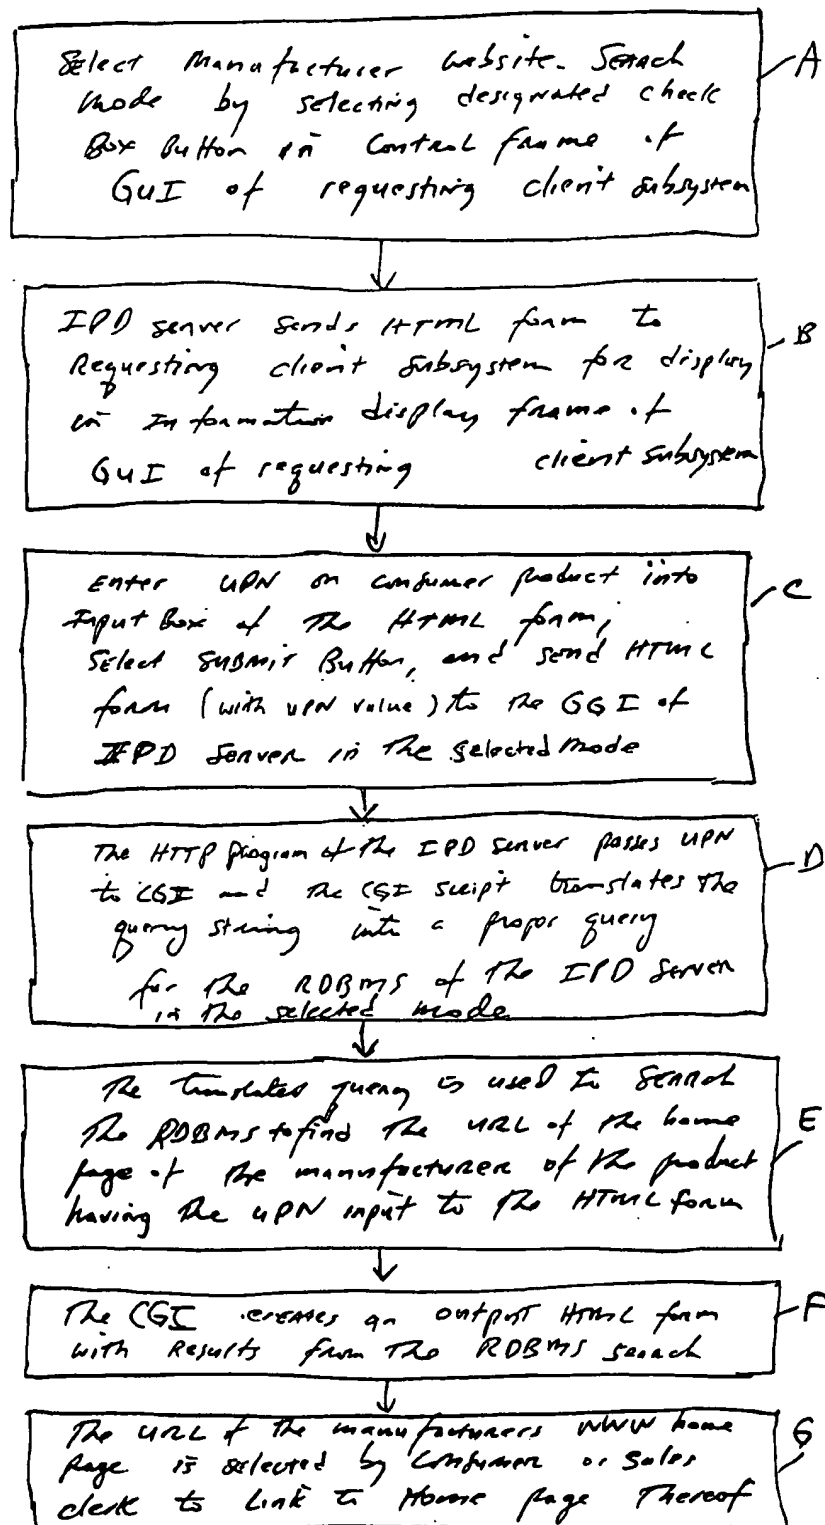 Select Manufacturer Website Search
Mode by selecting designated check
Box Button in Control frame of
GUI of requesting client subsystem
A
IPD server sends HTML form to
Requesting client subsystem for display
in Information display frame of
GUI of requesting client subsystem
B
Enter UPN on consumer product into
Input Box of the HTML form,
Select Submit Button, and send HTML
form (with UPN value) to the GGI of
IPD Server in the selected mode
C
The HTTP program of the IPD server passes UPN
to CGI and the CGI script translates the
query string into a proper query
for the RDBMS of the IPD Server
in the selected mode
D
The translates query is used to Search
The RDBMS to find the URL of the home
page of the manufacturer of the product
having the UPN input to the HTML form
E
The CGI creates an output HTML form
with Results from the RDBMS search
F
The URL of the manufacturers WWW home
page is selected by Consumer or Sales
clerk to Link to Home page Thereof
G